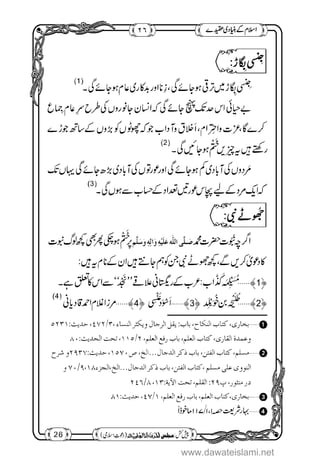 اسلام کے بنیادی عقیدے
٢٦
جنسی بگاڑ:
جنسی بگاڑ میں ترقی ہو جائے گی، زِنا اور بدکاری عام ہو جائے گی۔ (1)
بے حیائی اس حد تک پہنچ جائے گی کہ انسان جانوروں کی طرح سرِ عام جماع
کرے گا، عزت و احترام، اخلاق و آداب جو کہ چھوٹوں کو بڑوں کے ساتھ جوڑے
رکھتے ہیں یہ چیزیں ختم ہو جائیں گی۔ (2)
مَردوں کی آبادی کم ہو جائے گی اور عورتوں کی آبادی بڑھ جائے گی یہاں تک
کہ ایک مرد کے لیے پچاس عورتیں تعداد کے حساب سے ہوں گی۔ (3)
جھوٹے نبی:
اگرچہ نبوت حضرت محمد صلی اللہ علیہ واٰلہ وسلم پر ختم ہو چکی پھر بھی کچھ لوگ نبوت
کا دعویٰ کریں گے، کچھ جھوٹے نبی جن کو ہم جانتے ہیں ان کے نام یہ ہیں:
﴿1﴾…… مُسَیْلمہ کذّاب: عرب کے ریگستانی علاقے "نَجْد" سے اس کا تعلق ہے۔
﴿2﴾…… طُلَیحہ بن خُوَیلد ﴿3﴾…… اَسْوَد عَنْسی ﴿4﴾…… مرزا غلام احمد قادیانی (4)
1 …… بخاری، کتاب النکاح، باب: یقل الرجال ویکثر النساء، ٣/٤٧٢، حدیث: ٥٢٣١
وعمدة القاری، کتاب العلم، باب رفع العلم، ٢/١١٥، تحت الحدیث: ٨٠
2 …… مسلم، کتاب الفتن، باب ذکر الدجال...الخ، ص ١٥٧٠، حدیث: ٢٩٣٧ و شرح
النووی علی مسلم، کتاب الفتن، باب ذکر الدجال...الخ، الجزء ١٨، ٩/٧٠ و
در منثور، پ ٢٩، القلم، تحت الآیة: ١٣، ٨/٢٤٦
3 …… بخاری، کتاب العلم، باب رفع العلم، ١/٤٧، حدیث: ٨١
4 …… بہارِ شریعت، حصہ ا، ١/١١٧ ماخوذاً
پیش کش: مجلس المدینۃ العلمیۃ (دعوتِ اسلامی)
26
www.dawateislami.net